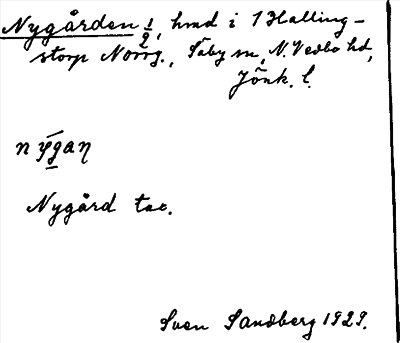 Nygården 1/2, hmd i 1 Halling-
storp Norrg., Säby sn, N. Vedbo hd,
Jönk. l.
nȳgaη
Nygård tax.
Sven Sandberg 1929.